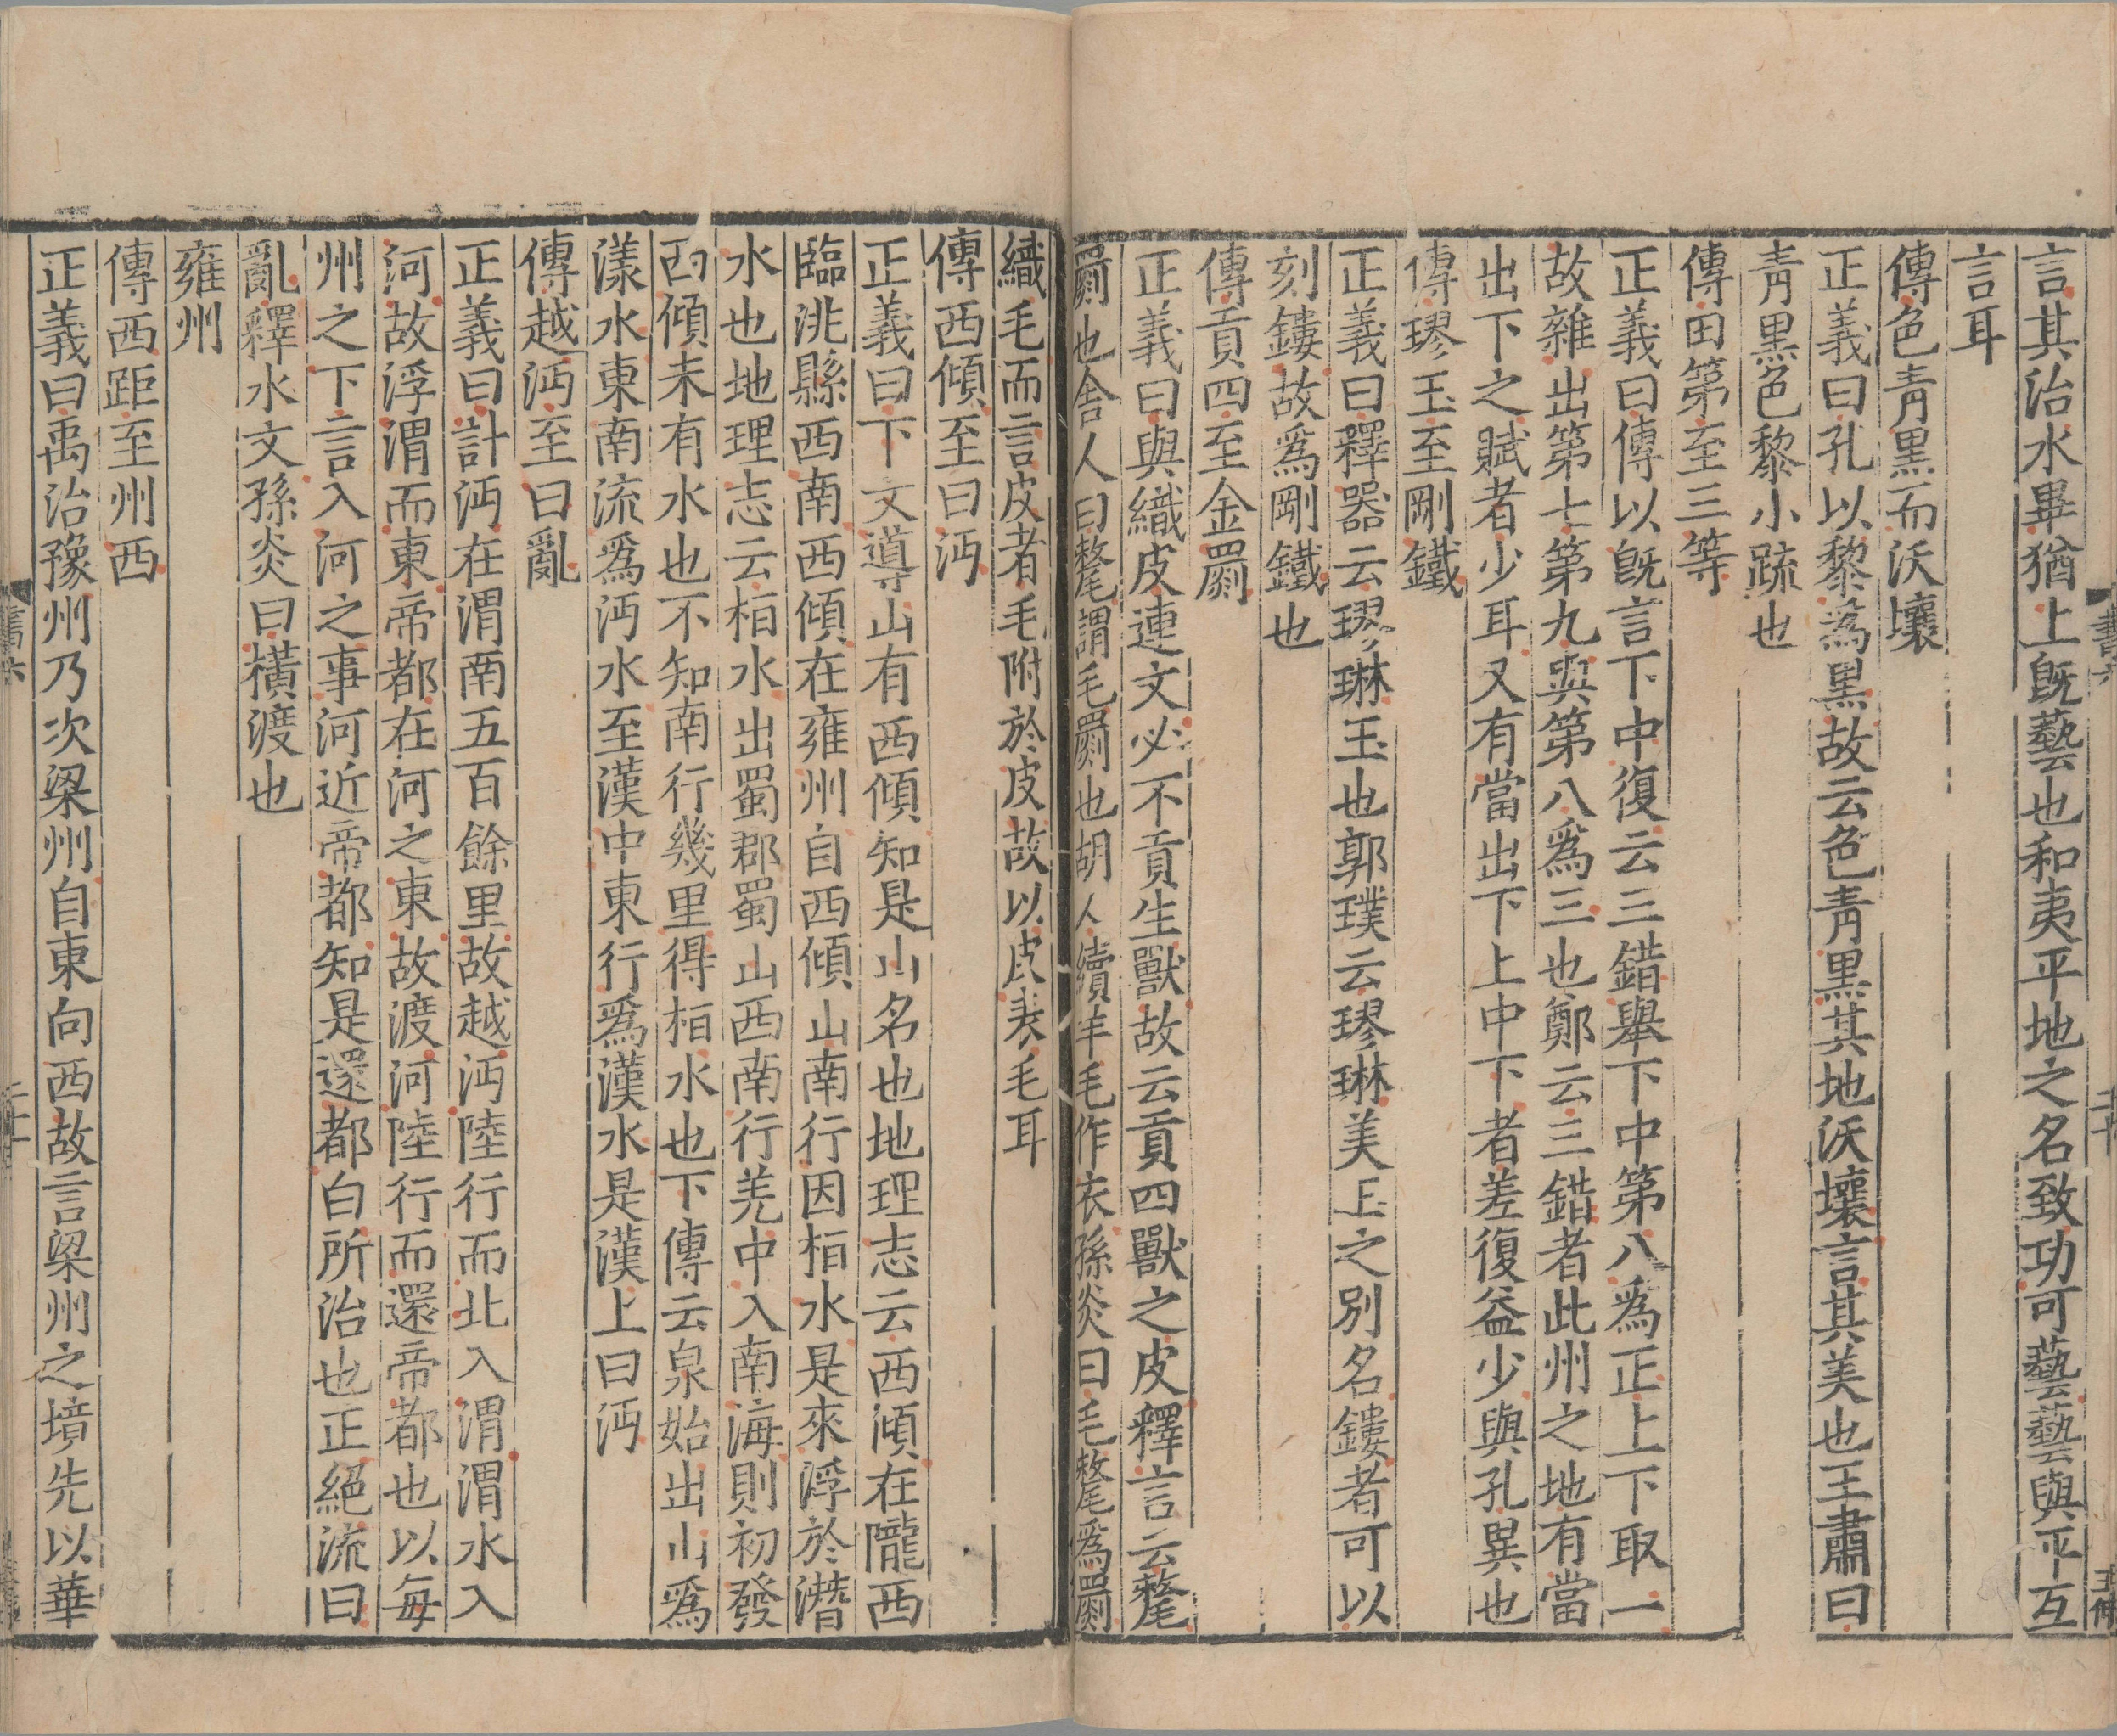 言其治水畢猶上既藝也和夷平地之名致功可藝藝與平互
言耳
傳色青黑而沃壤
正義曰孔以黎爲黑故云色青黑其地沃壤言其美也王肅曰
青黑色黎小疏也
傳田第至三等
正義曰傳以旣言下中復云三錯舉下中第八爲正上下取一
故雜出第七第九與第八爲三也鄭云三錯者此州之地有當
出下之賦者少耳又有當出下上中下者差復益少與孔異也
傳璆玉至剛鐵
正義曰釋器云璆琳玉也郭璞云璆琳美玉之別名鏤者可以
刻鏤故爲剛鐵也
傳貢四至金罽
正義曰與織皮連文必不貢生獸故云貢四獸之皮釋言云氂
罽也舎人曰氂謂毛罽也胡人續羊毛作衣孫炎曰毛氂爲罽
織毛而言皮者毛附於皮故以皮表毛耳
傳西傾至曰沔
正義曰下文導山有西傾知是山名也地理志云西傾在隴西
臨洮縣西南西傾在雍州自西傾山南行因桓水是來浮於潛
水也地理志云桓水出蜀郡蜀山西南行羌中入南海則初發
西傾未有水也不知南行幾里得桓水也下傳云泉始出山爲
漾水東南流爲沔水至漢中東行爲漢水是漢上曰沔
傳越沔至曰亂
正義曰計沔在渭南五百餘里故越沔陸行而北入渭渭水入
河故浮渭而東帝都在河之東故渡河陸行而還帝都也以每
州之下言入河之事河近帝都知是還都白所治也正絕流曰
亂釋水文孫炎曰橫渡也
雍州
傳西距至州西
正義曰禹治豫州乃次梁州自東向西故言梁州之境先以華
書六